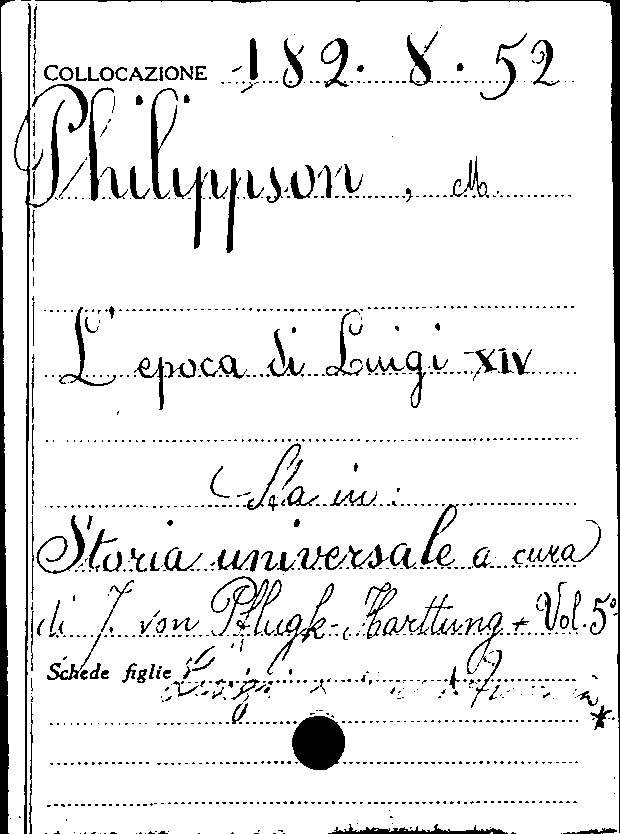 COLLOCAZIONE 182. 8. 52
Philippson, M.
L'epoca di Luigi XIV
Sta in:
Storia universale a cura
di J. von Pflugk-Harttung, Vol. 5°
Schede figlie
Luigi
*